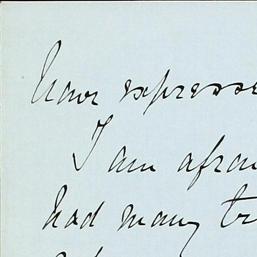 have expresse
I am afrai
had many tr